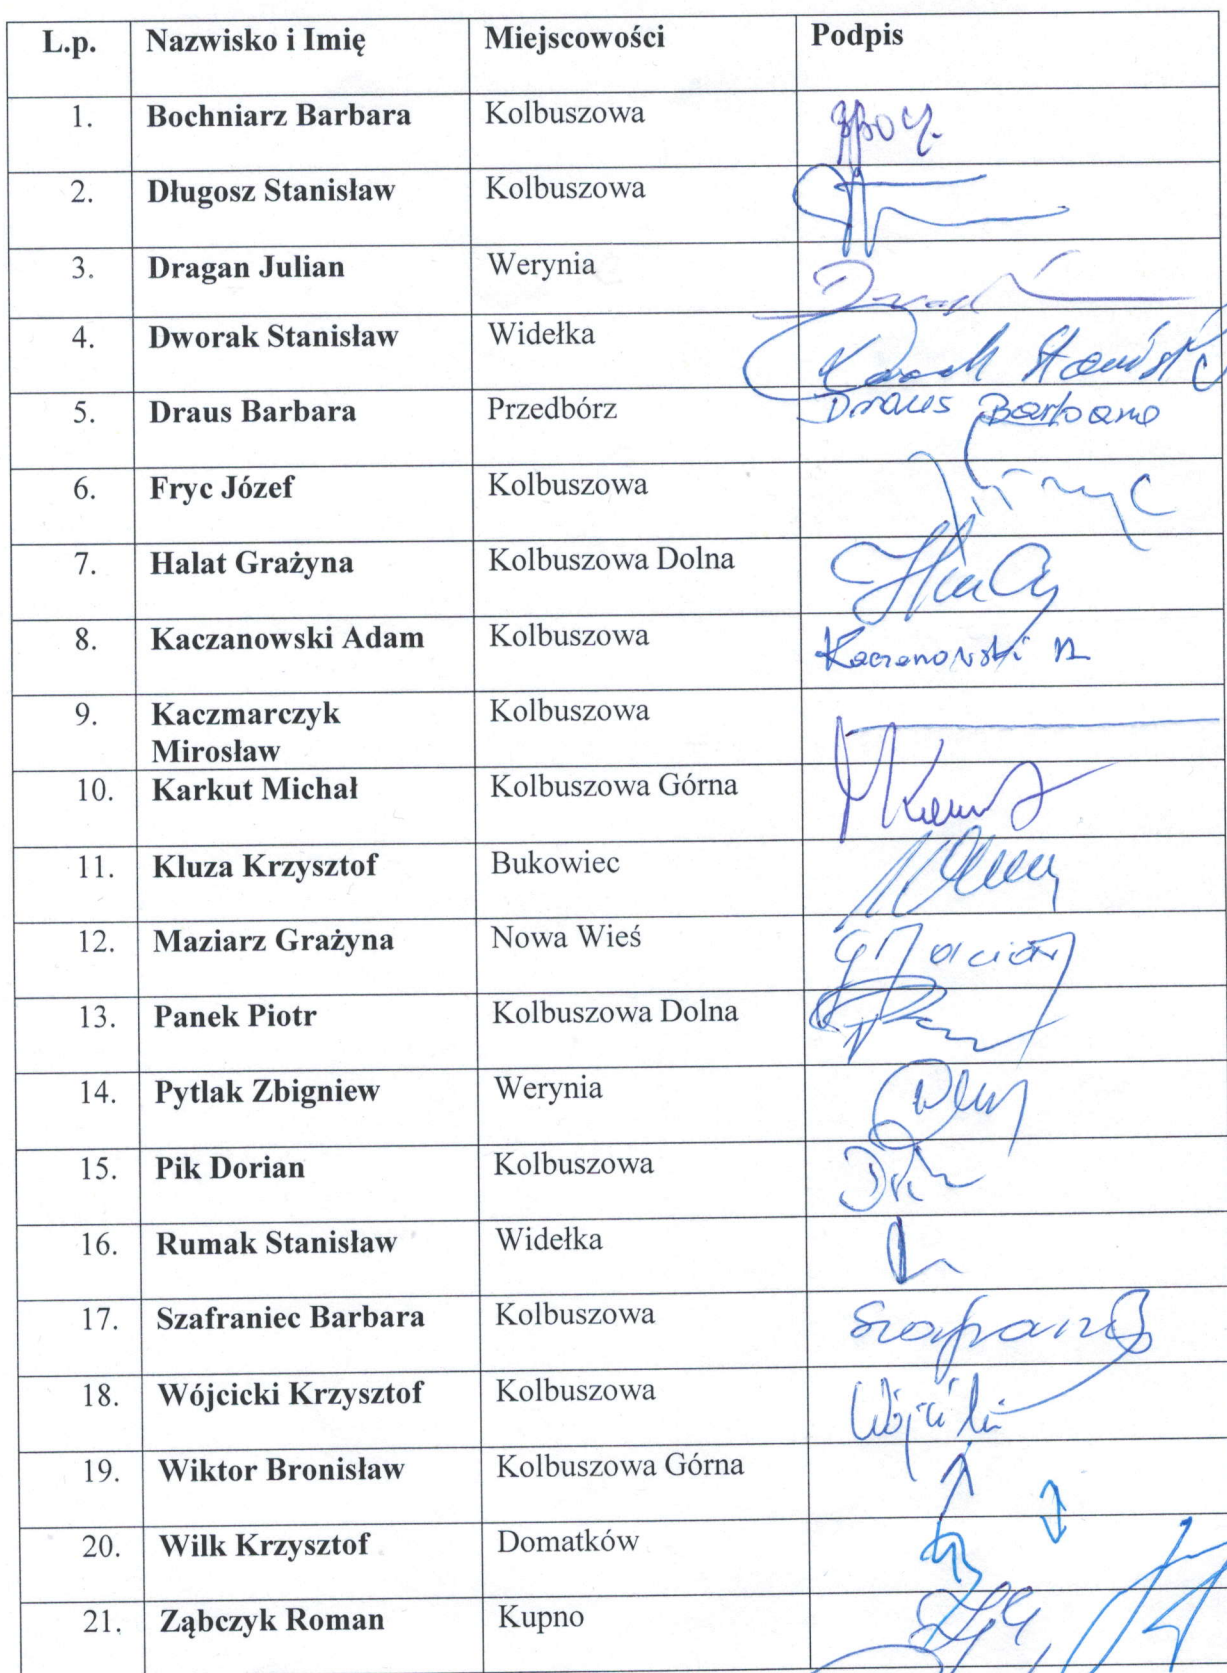 L.p. Nazwisko i Imię Miejscowości Podpis
1. Bochniarz Barbara Kolbuszowa
2. Długosz Stanisław Kolbuszowa
3. Dragan Julian Werynia
4. Dworak Stanisław Widełka
5. Draus Barbara Przedbórz Draus Barbara
6. Fryc Józef Kolbuszowa
7. Halat Grażyna Kolbuszowa Dolna
8. Kaczanowski Adam Kolbuszowa Kaczanowski A
9. Kaczmarczyk Kolbuszowa
Mirosław
10. Karkut Michał Kolbuszowa Górna
11. Kluza Krzysztof Bukowiec
12. Maziarz Grażyna Nowa Wieś
13. Panek Piotr Kolbuszowa Dolna
14. Pytlak Zbigniew Werynia
15. Pik Dorian Kolbuszowa
16. Rumak Stanisław Widełka
17. Szafraniec Barbara Kolbuszowa
18. Wójcicki Krzysztof Kolbuszowa
19. Wiktor Bronisław Kolbuszowa Górna
20. Wilk Krzysztof Domatków
21. Ząbczyk Roman Kupno